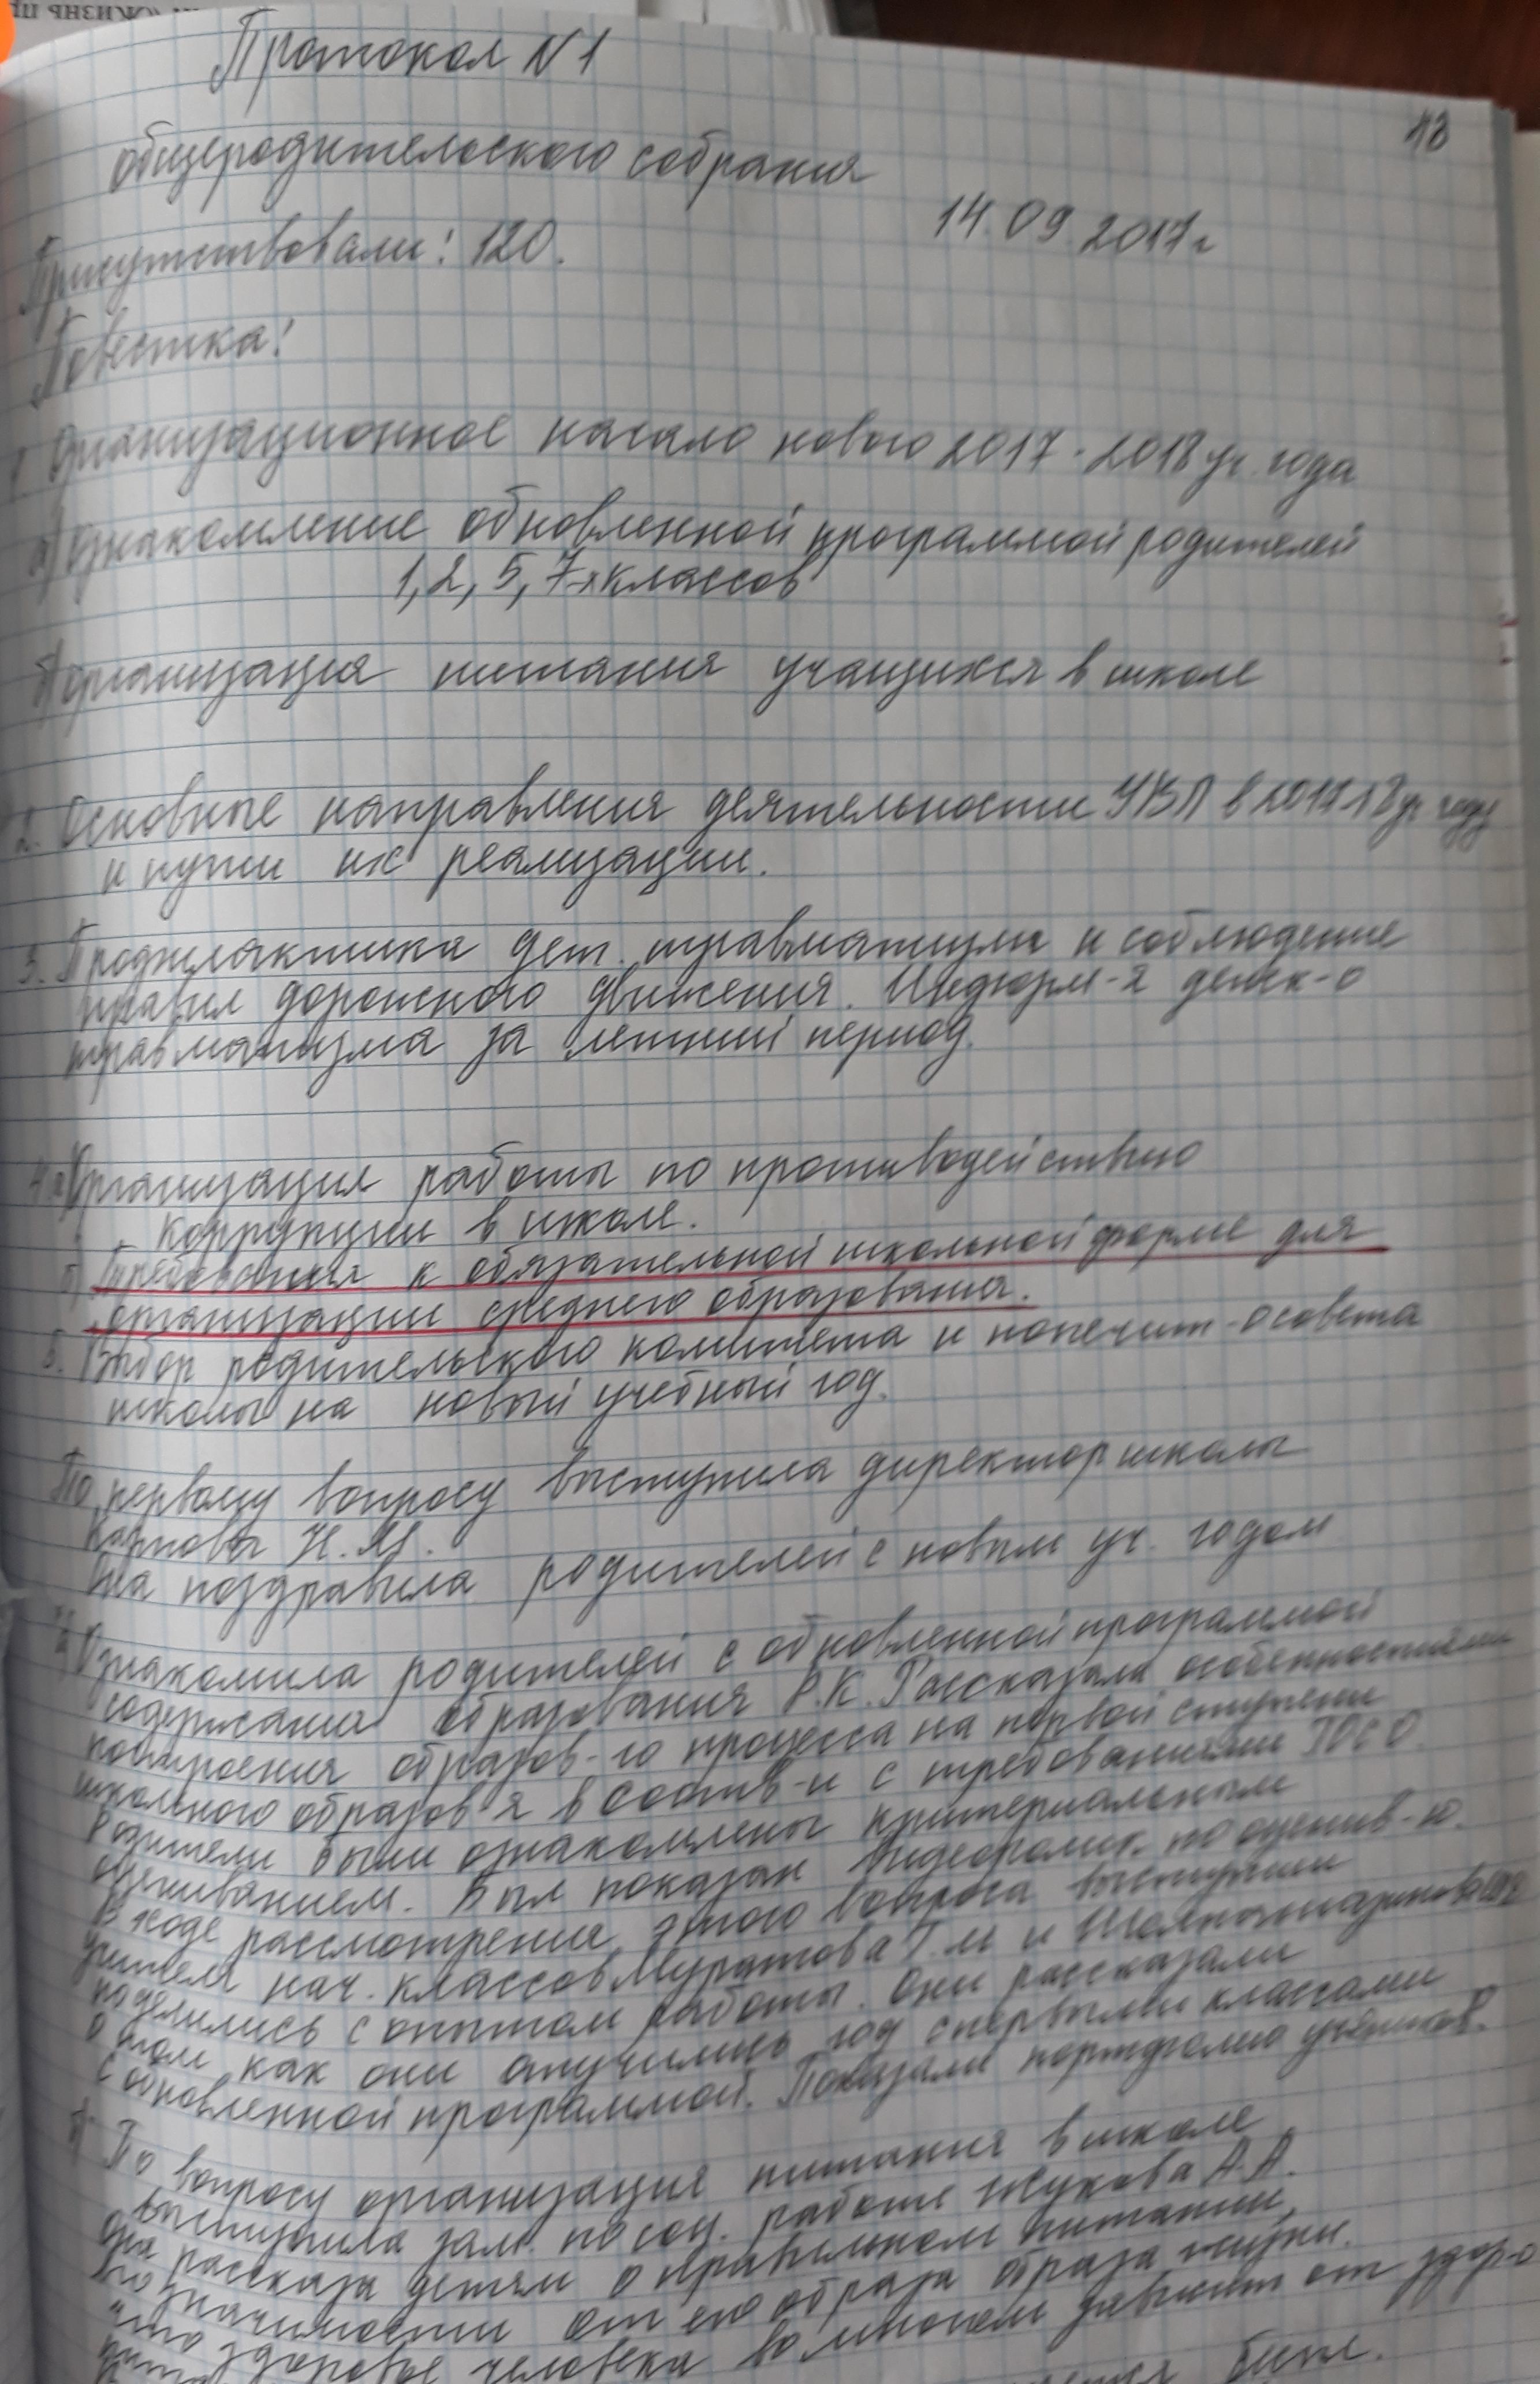 Протокол N 1
48
общеродительского собрания
14.09.2017г
Присутствовали: 120.
Повестка:
1. Организационное начало нового 2017-2018 уч. года
а) ознакомление обновленной программой родителей
1, 2, 5, 7-х классов
б) организация питания учащихся в школе
2. Основные направления деятельности УВП в 2017 18 уч году
и пути их реализации.
3. Профилактика дет. травматизма и соблюдение
правил дорожного движения. Информ-я детск-о
травматизма за летний период.
4. а) Организация работы по противодействию
коррупции в школе.
б) Требования к обязательной школьной форме для
организации среднего образования.
5. Выбор родительского комитета и попечит-о совета
школы на новый учебный год.
По первому вопросу выступила директор школы
Карпова Н. М.
Она поздравила родителей с новым уч. годом
а) Ознакомила родителей с обновленной программой
содержания образования Р.К. Рассказала особенностями
построения образов-го процесса на первой ступени
школьного образов-я в соотв-и с требованиями ГОСО.
Родители были ознакомлены критериальным
оцениванием. Был показан видеоролик по оценив-ю.
В ходе рассмотрения этого вопроса выступили
учителя нач. классов Муратова Г. М и
поделились с опытом работы. Они рассказали
о том как они отучились год с первыми классами
с обновленной программой. Показали портфолио учеников.
б) По вопросу организация питания в школе
выступила зам. по соц. работе Жукова А. А.
Она рассказа детям о правильном питании,
его значимости от его образа образа жизни.
что здоровье человека во многом зависит от здор-о